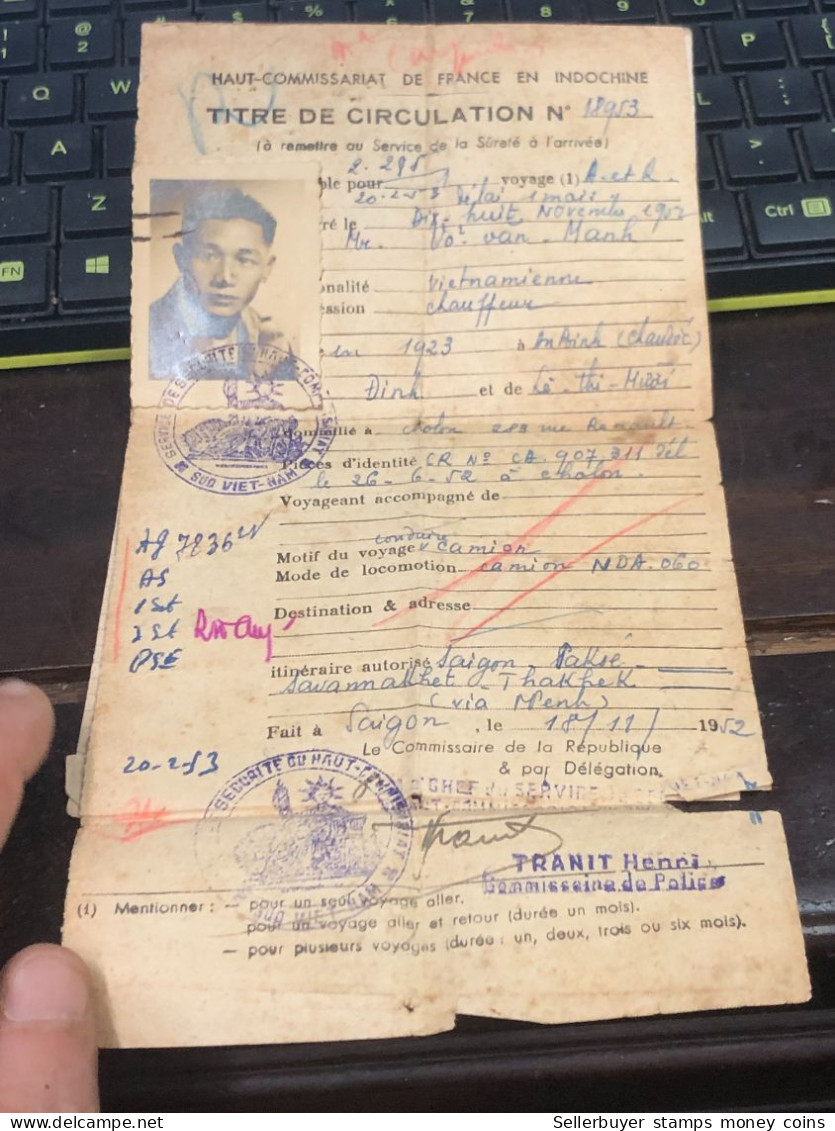 HAUT-COMMISSARIAT DE FRANCE EN INDOCHINE
TITRE DE CIRCULATION N° 18953
(à remettre au Service de la Sûreté à l'arrivée)
2.295
ble pour voyage (1) A. et R.
20-2-53 Délai 1 mois
ré le Dix huit Novembre 1952
Mr. Vô van Manh
onalité Vietnamienne
ession chauffeur
en 1923 à An Binh (Chaudoc)
Dinh et de Lê-Thi-Muoi
domicilié à Cholon 283 rue Renault
Pièces d'identité CR N° CA.907.311 Dél
le 26-6-52 à Cholon.
Voyageant accompagné de
Motif du voyage conduire camion
Mode de locomotion camion NDA.060
Destination & adresse
itinéraire autorisé Saigon Paksé
Savannakhet - Thakhek
(via Menh)
Fait à Saigon, le 18/11/1952
Le Commissaire de la République
& par Délégation
CHEF du SERVICE
TRANIT Henri
Commissaire de Police
(1) Mentionner : — pour un seul voyage aller.
— pour un voyage aller et retour (durée un mois).
— pour plusieurs voyages (durée : un, deux, trois ou six mois).
SERVICE DE SECURITE DU HAUT-COMMISSARIAT
SUD VIET-NAM
AG 7836
AS
1 St
2 St
PSE
20-2-53
SECURITE DU HAUT-COMMISSARIAT
SUD VIET-NAM
FN
Ctrl
Alt
A
Z
Sellerbuyer stamps money coins